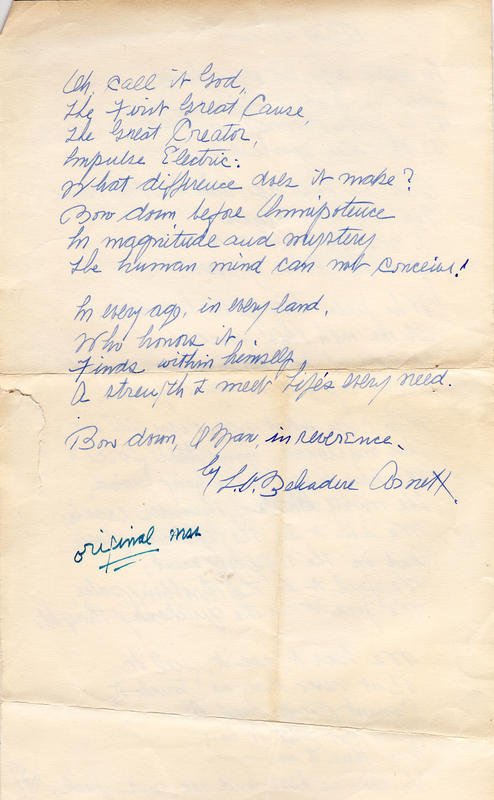 Oh, call it God,
The First Great Cause,
The Great Creator,
Impulse Electric:
What difference does it make?
Bow down before Omnipotence
In magnitude and mystery
The human mind can not conceive!
In every age, in every land,
Who honors it
Finds within himself
A strength to meet Life's every need.
Bow down, O Man, in reverence.
by L.O. Belvadere Arnett
original